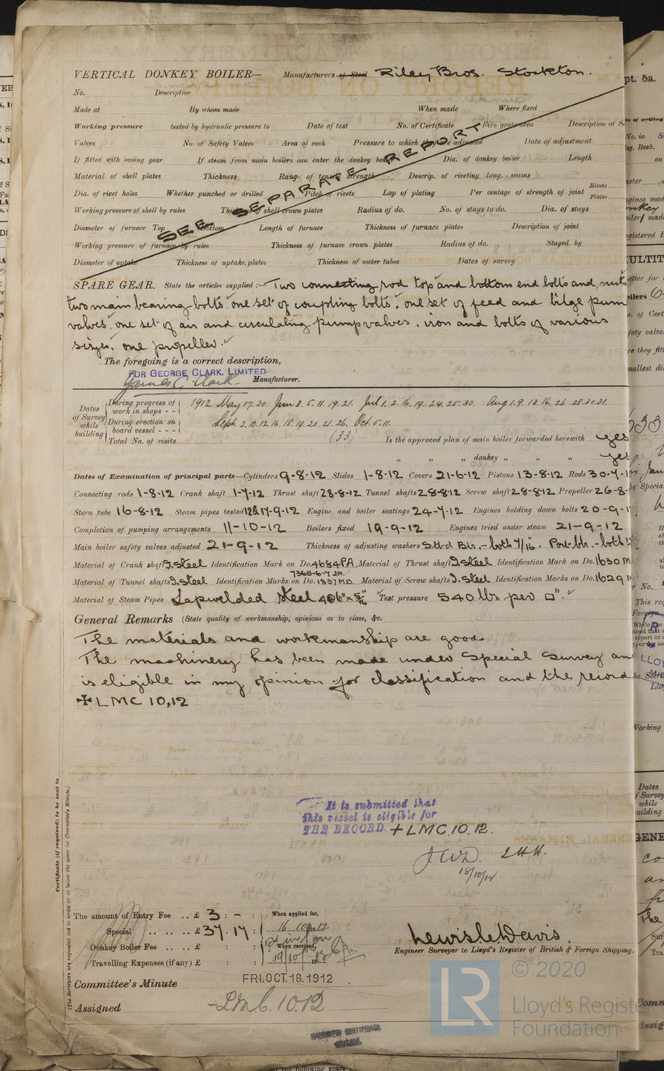 VERTICAL DONKEY BOILER— Manufacturers of Steel Riley Bros. Stockton.
No. Description
Made at By whom made When made Where fixed
Working pressure tested by hydraulic pressure to Date of test No. of Certificate Fire grate area Description of
Valves No. of Safety Valves Area of each Pressure to which they are adjusted Date of adjustment
If fitted with easing gear If steam from main boilers can enter the donkey boiler Dia. of donkey boiler Length
Material of shell plates Thickness Range of tensile strength Descrip. of riveting long. seams
Dia. of rivet holes Whether punched or drilled Pitch of rivets Lap of plating Per centage of strength of joint Rivets Plates
Working pressure of shell by rules Thickness of shell crown plates Radius of do. No. of stays to do. Dia. of stays
Diameter of furnace Top Bottom Length of furnace Thickness of furnace plates Description of joint
Working pressure of furnace by rules Thickness of furnace crown plates Radius of do. Stayed by
Diameter of uptake Thickness of uptake plates Thickness of water tubes Dates of survey
SEE SEPARATE REPORT
SPARE GEAR. State the articles supplied:— Two connecting rod top and bottom end bolts and nuts
two main bearing bolts, one set of coupling bolts, one set of feed and bilge pump
valves, one set of air and circulating pump valves, iron and bolts of various
sizes, one propeller.
The foregoing is a correct description,
FOR GEORGE CLARK, LIMITED
James C. Clark Manufacturer.
Dates of Survey while building
During progress of work in shops - - 1912 May 17. 30. Jun 3. 5. 11. 19. 21. Jul 1. 2. 16. 19. 24. 25. 30. Aug 1. 9. 13. 16. 26. 28. 30. 31.
During erection on board vessel - - - Sept 2. 10. 12. 16. 18. 19. 20. 21. 26. Oct. 5. 11.
Total No. of visits (33) Is the approved plan of main boiler forwarded herewith yes
" " " donkey " " yes
Dates of Examination of principal parts—Cylinders 9-8-12 Slides 1-8-12 Covers 21-6-12 Pistons 13-8-12 Rods 30-7-1
Connecting rods 1-8-12 Crank shaft 1-7-12 Thrust shaft 28-8-12 Tunnel shafts 28-8-12 Screw shaft 28-8-12 Propeller 26-8-
Stern tube 16-8-12 Steam pipes tested 12&17-9-12 Engine and boiler seatings 24-7-12 Engines holding down bolts 20-9-1
Completion of pumping arrangements 11-10-12 Boilers fixed 19-9-12 Engines tried under steam 21-9-12
Main boiler safety valves adjusted 21-9-12 Thickness of adjusting washers Stbd Blr. - both 7/16. Port blr. - both
Material of Crank shaft I. Steel Identification Mark on Do. 4684 P.A. Material of Thrust shaft I. Steel Identification Mark on Do. 1630 M
Material of Tunnel shafts I. Steel Identification Marks on Do. 7365-6-7 JM. 1637 M.D. Material of Screw shafts I. Steel Identification Marks on Do. 1629 M
Material of Steam Pipes Lapwelded Steel Test pressure 540 lbs per □".
General Remarks (State quality of workmanship, opinions as to class, &c.
The materials and workmanship are good.
The machinery has been made under Special Survey an
is eligible in my opinion for classification and the record
✠ LMC 10,12
It is submitted that
this vessel is eligible for
THE RECORD. + LMC, 10. 12.
18/10/12
Certificate (if required) to be sent to
The amount of Entry Fee .. £ 3 : - : When applied for,
Special .. .. .. £ 37 : 17 : 16. 10. 12
Donkey Boiler Fee .. .. £ : : When received,
Travelling Expenses (if any) £ : : 19/10
Lewis Le Davis.
Engineer Surveyor to Lloyd's Register of British & Foreign Shipping.
Committee's Minute FRI. OCT. 18. 1912
Assigned + LMC. 10.12
LR © 2020
Lloyd's Register
Foundation